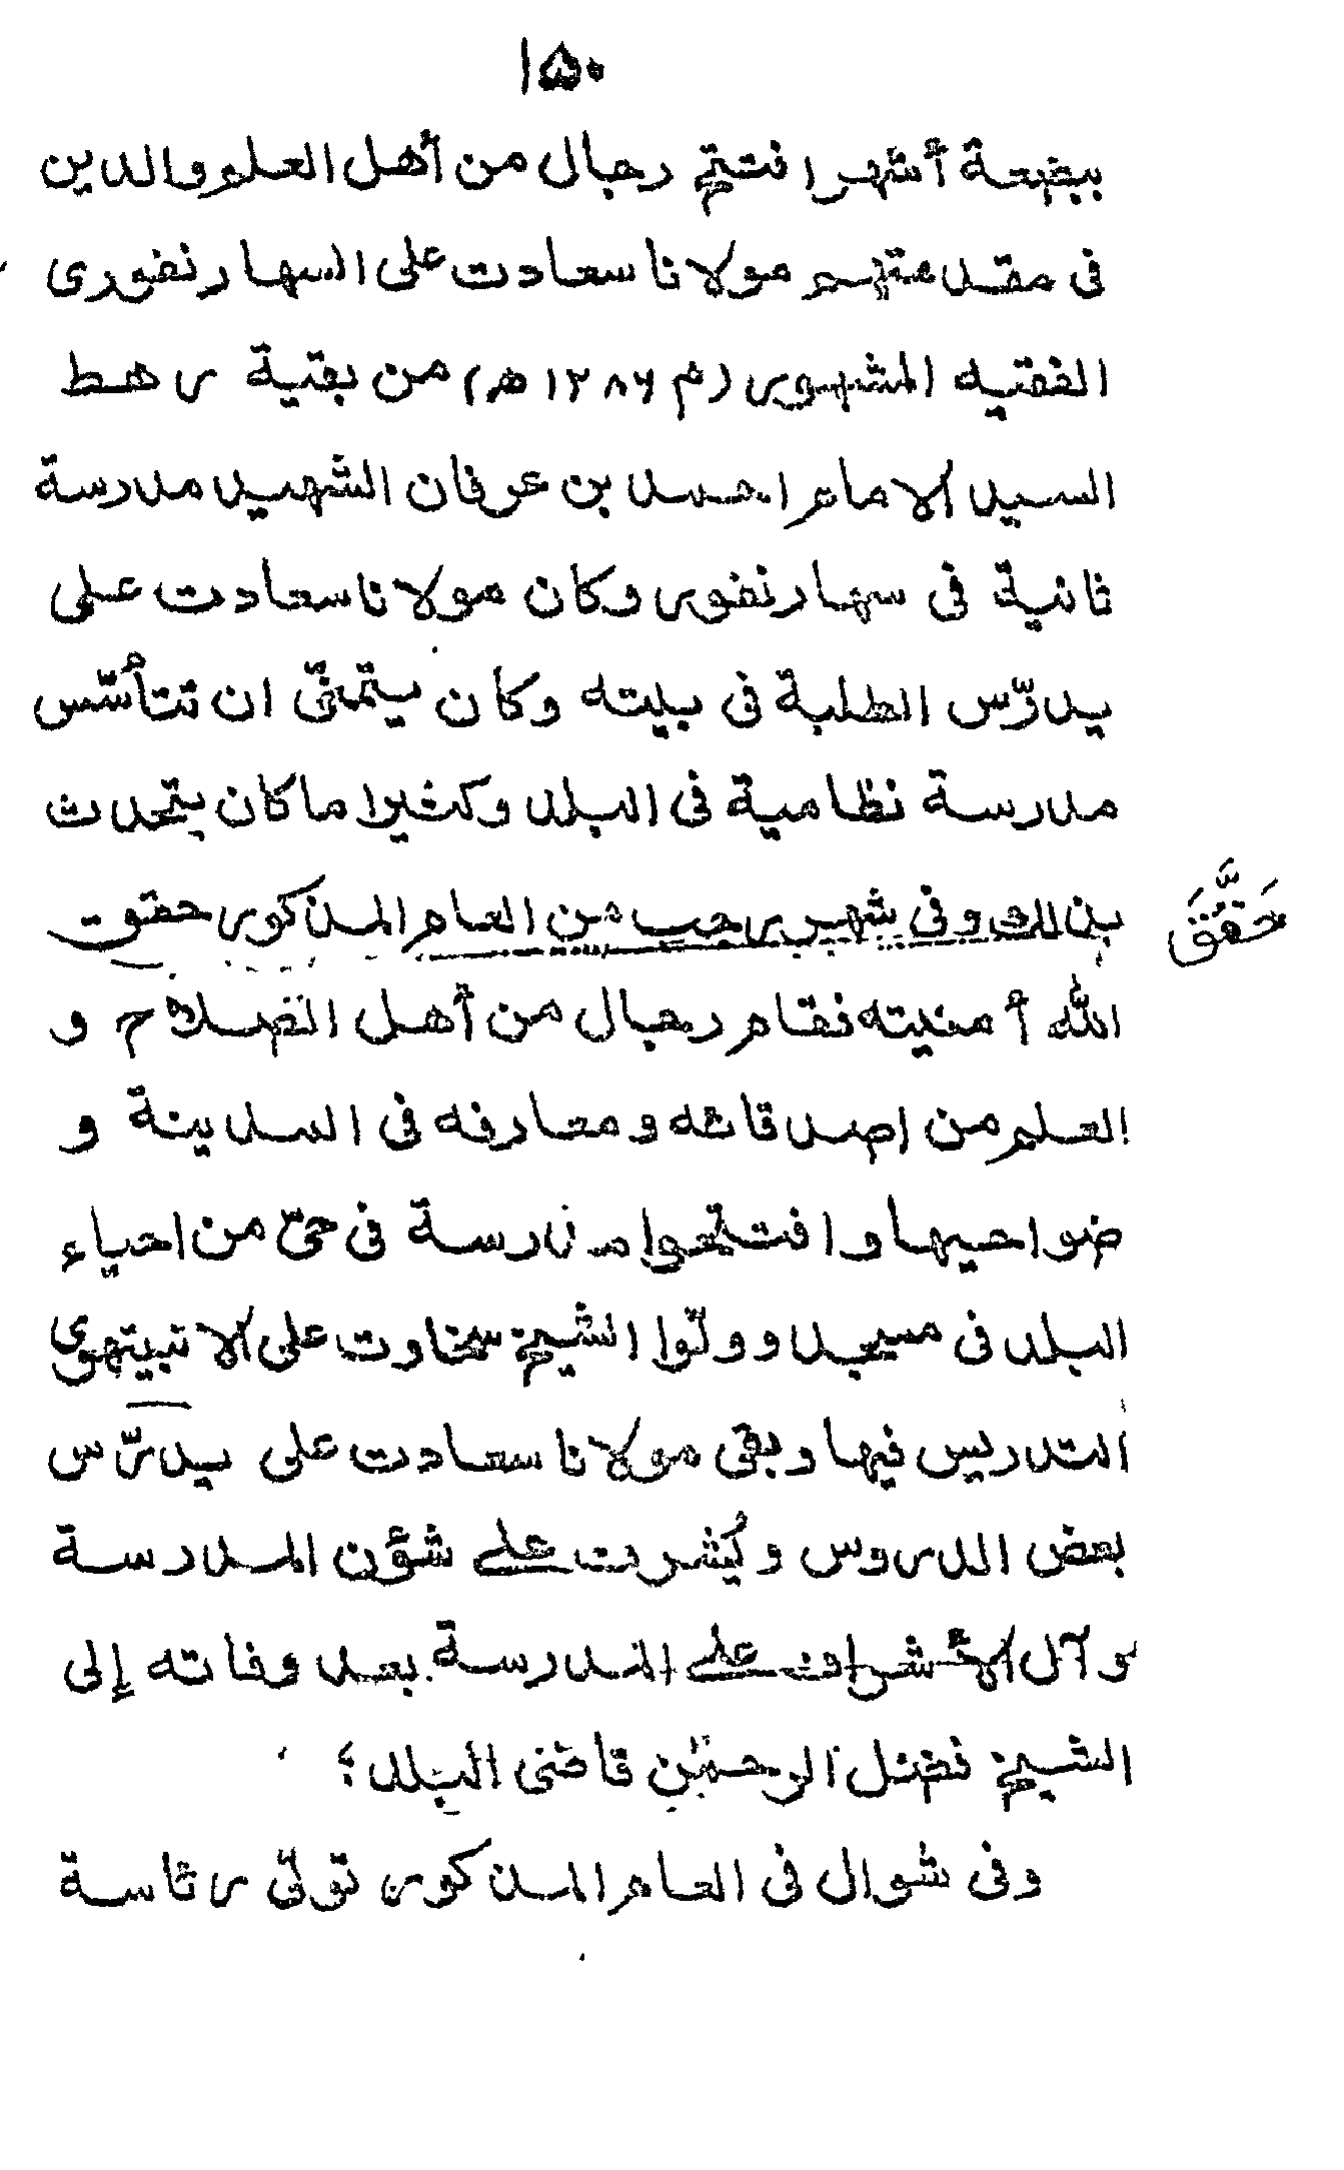 ۱۵۰
ببضعة أشهر افتتح رجال من أهل العلم والدين
فى مقدمتهم مولانا سعادت على السهارنفورى
الفقيه المشهور (م ۱۲۸۶ هـ) من بقية رهط
السيد الامام احمد بن عرفان الشهيد مدرسة
ثانية فى سهارنفور وكان مولانا سعادت على
يدرّس الطلبة فى بيته وكان يتمنّى ان تتأسّس
مدرسة نظامية فى البلد وكثيرا ما كان يتحدث
بذلك وفى شهر رجب من العام المذكور حققت
حَقَّقَ
الله أمنيته فقام رجال من أهل الصلاح و
العلم من اصدقائه ومعارفه فى المدينة و
ضواحيها وافتتحوا مدرسة فى حىّ من احياء
البلد فى مسجد وولّوا الشيخ سخاوت على الانبيتهوى
التدريس فيها وبقى مولانا سعادت على يدرّس
بعض الدروس ويُشرف على شؤن المدرسة
وآل الأشراف على المدرسة بعد وفاته إلى
الشيخ فضل الرحمٰن قاضى البلد؛
وفى شوال فى العام المذكور تولّى رئاسة